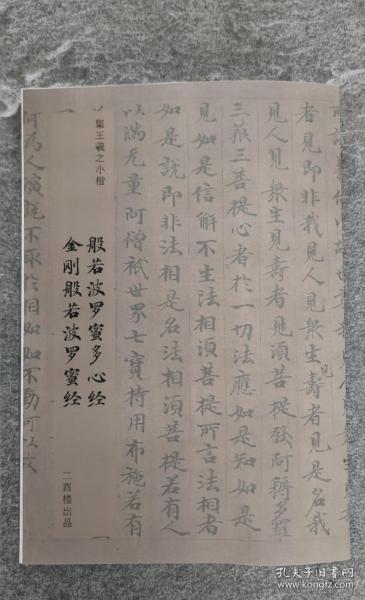 者見即非我見人見衆生見壽者見是名我
見人見衆生見壽者見須菩提發阿耨多羅
三藐三菩提心者於一切法應如是知如是
見如是信解不生法相須菩提所言法相者
如是說即非法相是名法相須菩提若有人
以滿无量阿僧祇世界七寶持用布施若有
集王羲之小楷
般若波罗蜜多心经
金刚般若波罗蜜经
二酉楼出品
何為人演說不取於相如如不動何以故
孔夫子旧书网
www.kongfz.com